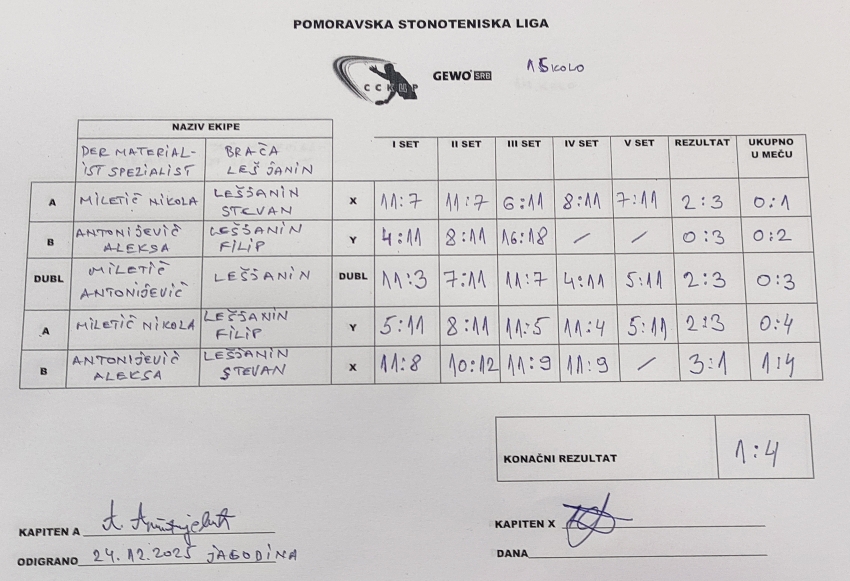 POMORAVSKA STONOTENISKA LIGA
CCKUP GEWO SRB 15 KOLO
NAZIV EKIPE I SET II SET III SET IV SET V SET REZULTAT UKUPNO U MEČU
DER MATERIAL- BRAČA
IST SPEZIALIST LEŠJANIN
A MILETIČ NIKOLA LEŠJANIN STEVAN X 11:7 11:7 6:11 8:11 7:11 2:3 0:1
B ANTONIJEVIČ ALEKSA LEŠJANIN FILIP Y 4:11 8:11 16:18 / / 0:3 0:2
DUBL MILETIČ ANTONIJEVIČ LEŠJANIN DUBL 11:3 7:11 11:7 4:11 5:11 2:3 0:3
A MILETIČ NIKOLA LEŠJANIN FILIP Y 5:11 8:11 11:5 11:4 5:11 2:3 0:4
B ANTONIJEVIČ ALEKSA LEŠJANIN STEVAN X 11:8 10:12 11:9 11:9 / 3:1 1:4
KONAČNI REZULTAT 1:4
KAPITEN A
KAPITEN X
ODIGRANO 24.12.2025 JAGODINA
DANA